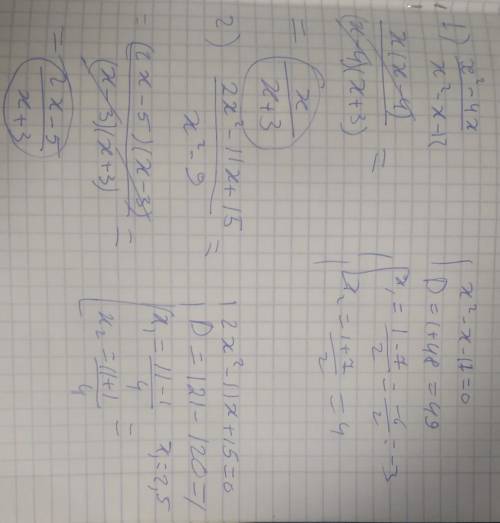 1) x²-4x / x²-x-12
x(x-4) / (x-4)(x+3) =
= x / x+3
x²-x-12=0
D=1+48=49
x₁ = 1-7 / 2 = -6 / 2 = -3
x₂ = 1+7 / 2 = 4
2) 2x²-11x+15 / x²-9 =
= (2x-5)(x-3) / (x-3)(x+3) =
= 2x-5 / x+3
2x²-11x+15=0
D=121-120=1
x₁ = 11-1 / 4 x₁=2,5
x₂ = 11+1 / 4 =